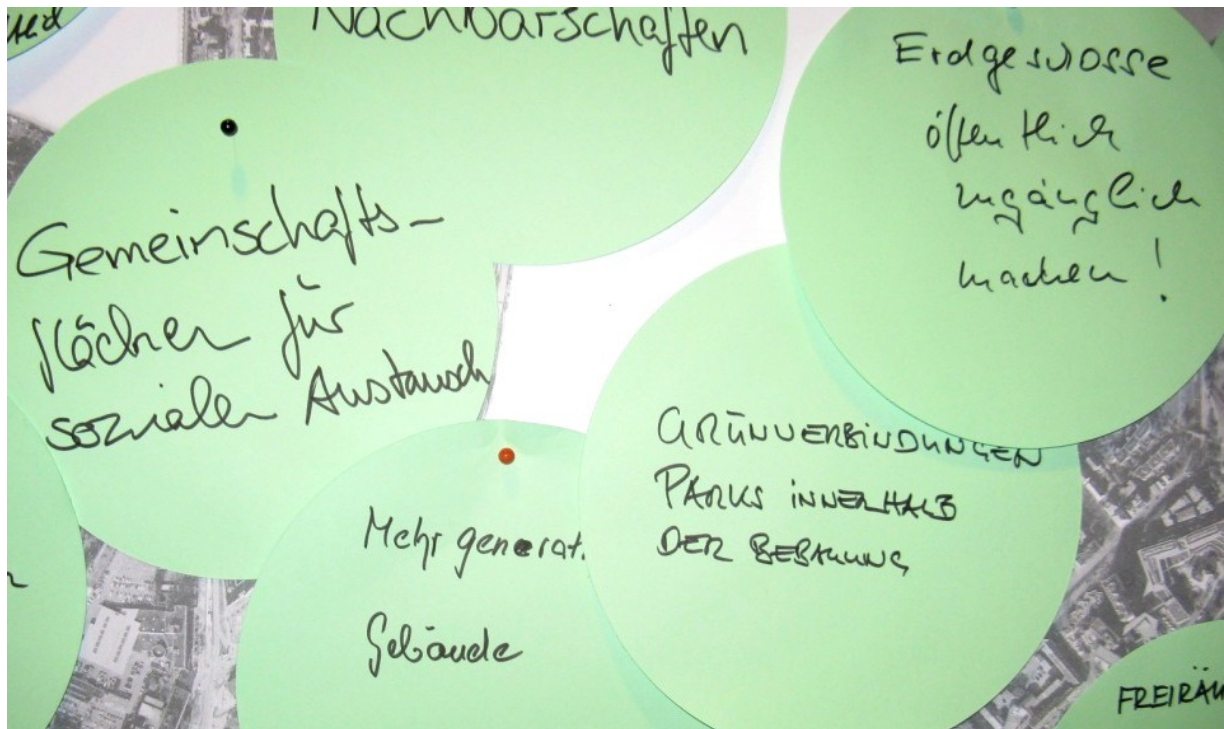 Nachbarschaften
Erdgeschosse
öffentlich
zugänglich
machen!
Gemeinschafts-
flächen für
sozialen Austausch
GRÜNVERBINDUNGEN
PARKS INNERHALB
DER BEBAUUNG
Mehr generat.
Gebäude
FREIRÄU